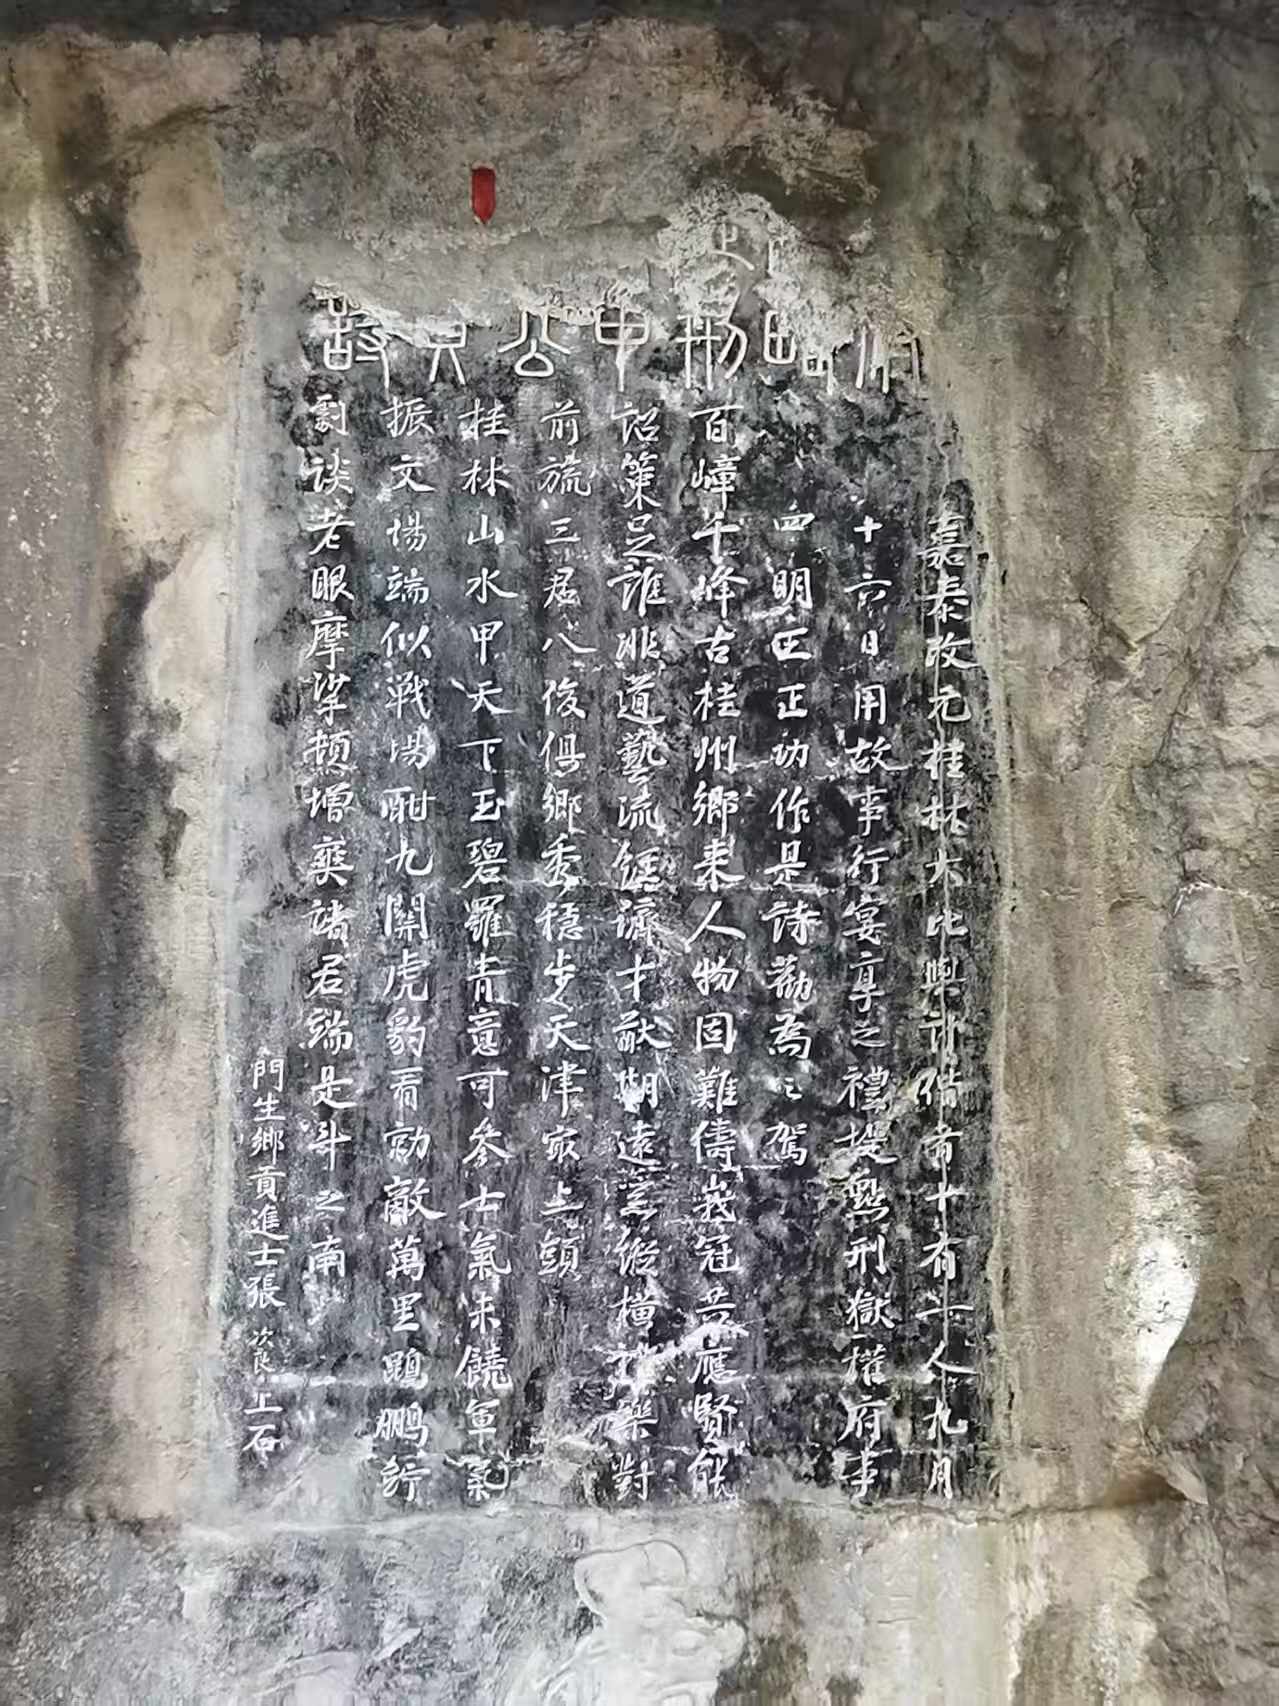 嘉泰改元桂林大比與計偕者十有一人九月
十六日用故事行宴享之禮提點刑獄權府事
四明王正功作是詩勸為之駕
百嶂千峰古桂州鄉来人物固難儔峩冠共應賢能
詔策足誰非道藝流經濟才猷期遠業縱橫禮樂對
前旒三君八俊俱鄉秀穩步天津最上頭
桂林山水甲天下玉碧羅青意可參士氣未饒軍氣
振文場端似戰場酣九關虎豹看勍敵萬里鵾鵬佇
劇談老眼摩挲頓增爽諸君端是斗之南
門生鄉貢進士張次良上石